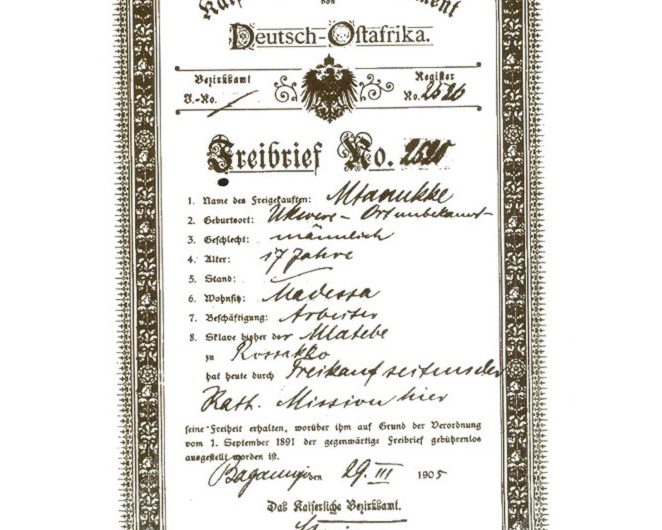 von
Deutsch-Ostafrika.
Bezirksamt Register
J.-No. No. 2520
Freibrief No. 2520
1. Name des Freigekauften: Mtanukke
2. Geburtsort: Ukwere - Ort unbekannt
3. Geschlecht: männlich
4. Alter: 17 Jahre
5. Stand:
6. Wohnsitz: Madessa
7. Beschäftigung: Arbeiter
8. Sklave bisher der Mlatebe
zu Kossakko
hat heute durch Freikauf seitens der
Kath. Mission hier
seine Freiheit erhalten, worüber ihm auf Grund der Verordnung
vom 1. September 1891 der gegenwärtige Freibrief gebührenlos
ausgestellt worden ist.
29. III 1905
Das Kaiserliche Bezirksamt.